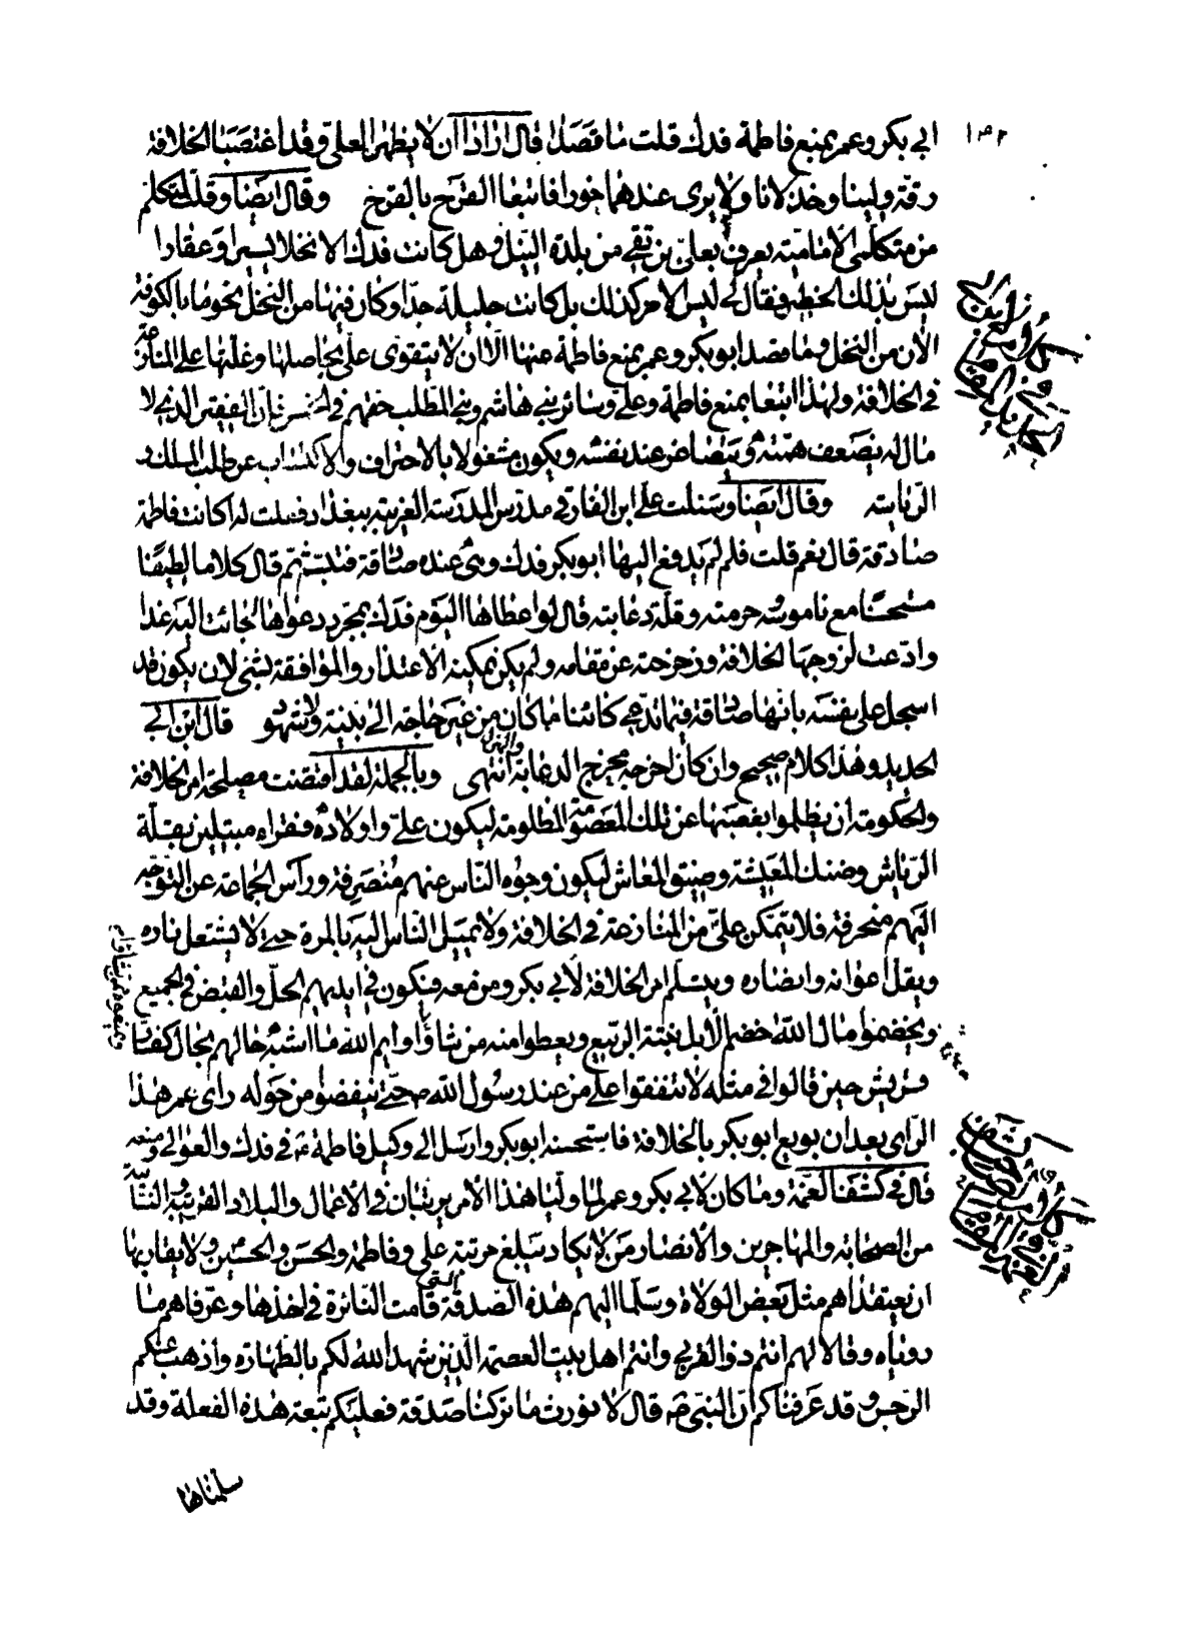 ١٣٢
ابي بكر وعمر بمنع فاطمة فدك قلت ما قصدا قال ارادا ان لا يظهر العلي وقد اغتصبا الخلافة
رقة ولينا وخذلانا ولا يرى عندهما خورا فاتبعا القرح بالقرح وقال ايضا وقلت لمتكلم
من متكلمي الامامية يعرف بعلي بن تقي من بلدة النيل وهل كانت فدك الا نخلا يسيرا وعقارا
ليس بذلك الخطير فقال لي ليس الامر كذلك بل كانت جليلة جدا وكان فيها من النخل نحو ما بالكوفة
الان من النخل وما قصد ابو بكر وعمر بمنع فاطمة عنها الا ان لا يتقوى علي بحاصلها وغلتها على المنازعة
في الخلافة ولهذا اتبعا بمنع فاطمة وعلي وسائر بني هاشم وبني المطلب حقهم في الخمس فان الفقير الذي لا
مال له يضعف همته ويتصاغر عند نفسه ويكون مشغولا بالاحتراف والاكتساب عن طلب الملك و
الرياسة وقال ايضا وسئلت علي ابن الفارقي مدرس المدرسة الغربية ببغداد فقلت له اكانت فاطمة
صادقة قال نعم قلت فلم لم يدفع اليها ابو بكر فدك وهي عنده صادقة فتبسم ثم قال كلاما لطيفا
مستحسنا مع ناموسه وحرمته وقلة دعابته قال لو اعطاها اليوم فدك بمجرد دعواها لجائت اليه غدا
وادعت لزوجها الخلافة وزحزحته عن مقامه ولم يكن يمكنه الاعتذار والموافقة بشئ لانه يكون قد
اسجل على نفسه بانها صادقة فيما تدعي كائنا ما كان من غير حاجة الى بينة ولا شهود قال ابن ابي
الحديد وهذا كلام صحيح وان كان اخرجه مخرج الدعابة والهزل انتهى وبالجملة لقد اقتضت مصلحة امر الخلافة
والحكومة ان يظلموا بغصبها عن تلك المعصومة المظلومة ليكون علي واولاده فقراء مبتلين بقلة
الرياش وضنك المعيشة وضيق المعاش ليكون وجوه الناس عنهم منصرفة ورأس الجماعة عن التوجه
اليهم منحرفة فلا يتمكن علي من المنازعة في الخلافة ولا تميل الناس اليه بالمرة حتى لا يشتعل ناره
ويقل اعوانه وانصاره ويتسلم امر الخلافة لابي بكر ومن معه فيكون في ايديهم الحل والقبض في الجميع
ويخضموا مال الله خضم الابل نبتة الربيع ويعطوا منه من شاؤا وايم الله ما اشبه حالهم بحال كفار
قريش حين قالوا في مثله لا تنفقوا على من عند رسول الله حتى ينفضوا من حوله راى عمر هذا
الراى بعد ان بويع ابو بكر بالخلافة فاستحسنه ابو بكر وارسل الى وكيل فاطمة ع في فدك والعوالي ومنعه
قال في كشف الغمة وما كان لابي بكر وعمر لما وليا هذا الامر يرتبان في الاعمال والبلاد القريبة والنائية
من الصحابة والمهاجرين والانصار من لا يكاد يبلغ مرتبة علي وفاطمة والحسن والحسين ولا يقاربها
ان يعتقداهم مثل بعض الولاة وسلما اليهم هذه الصدقة التي قامت النائرة في اخذها وعرفاهم ما
روياه وقالا لهم انتم ذو القربى وانتم اهل بيت العصمة الذين شهد الله لكم بالطهارة واذهب عنكم
الرجس وقد عرفناكم ان النبي ص قال لا نورث ما تركنا صدقة فعليكم تبعة هذه الفعلة وقد
سلمناها